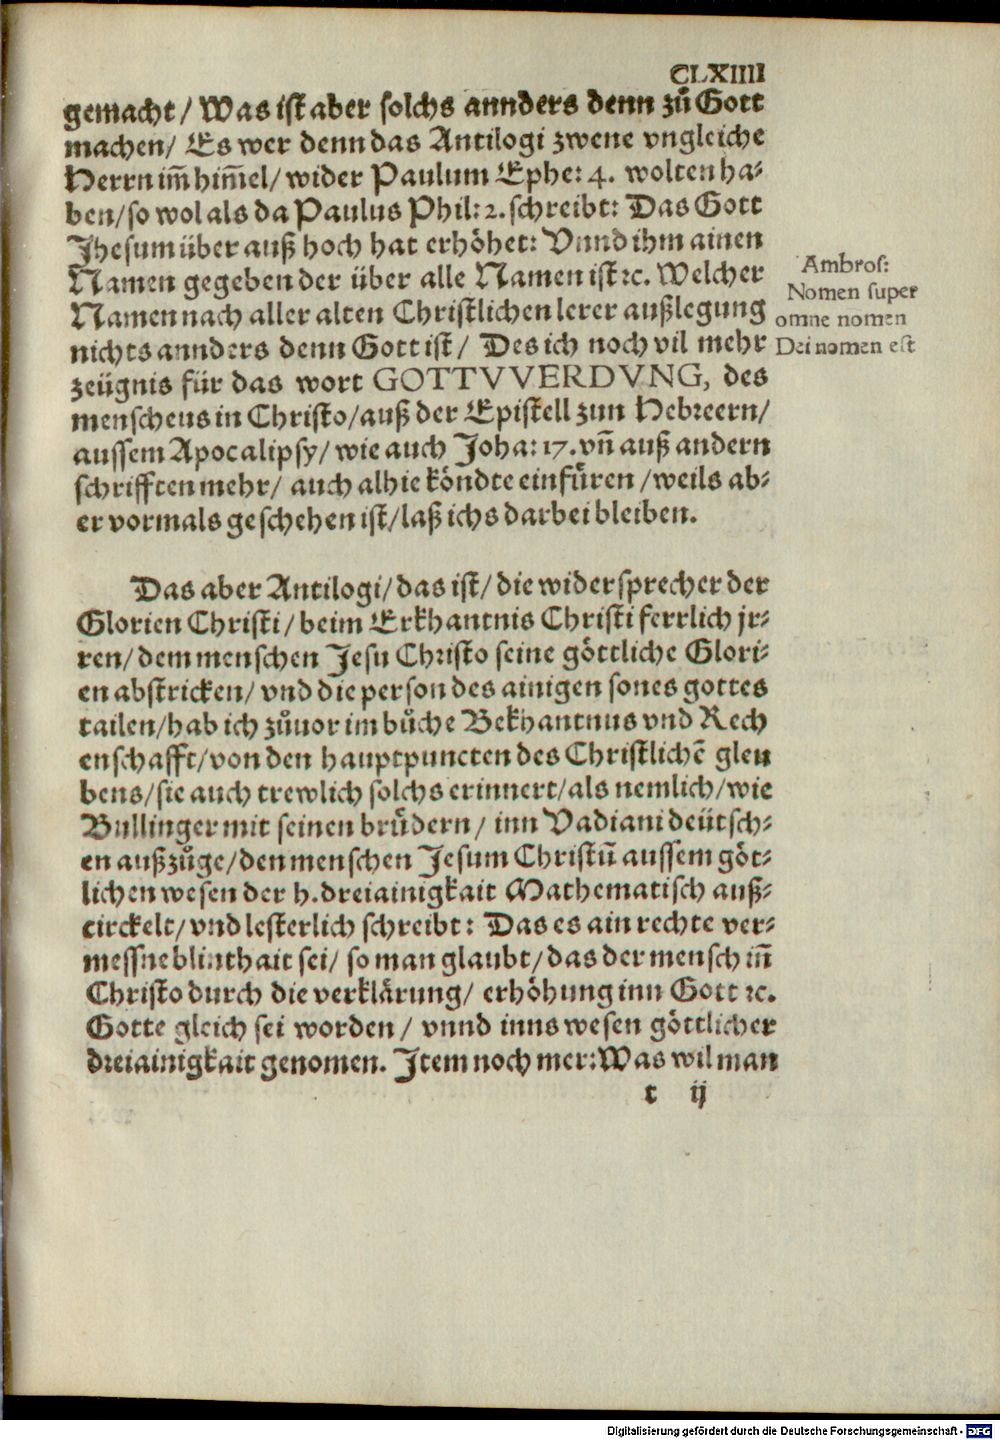 CLXIIII
gemacht / Was ist aber solchs annders denn zů Gott
machen / Es wer denn das Antilogi zwene vngleiche
Herrn im̄ him̄el / wider Paulum Ephe: 4. wolten ha-
ben / so wol als da Paulus Phil: 2. schreibt: Das Gott
Jhesum über auß hoch hat erhöhet: Vnnd ihm ainen
Namen gegeben der über alle Namen ist ꝛc. Welcher
Namen nach aller alten Christlichen lerer außlegung
nichts annders denn Gott ist / Des ich noch vil mehr
zeügnis für das wort GOTTVVERDVNG, des
menschens in Christo / auß der Epistell zun Hebreern /
aussem Apocalipsy / wie auch Joha: 17. vn̄ auß andern
schrifften mehr / auch alhie köndte einfüren / weils ab-
er vormals geschehen ist / laß ichs darbei bleiben.
Ambros:
Nomen super
omne nomen
Dei nomen est
Das aber Antilogi / das ist / die widersprecher der
Glorien Christi / beim Erkhantnis Christi ferrlich jr-
ren / dem menschen Jesu Christo seine göttliche Glori-
en abstricken / vnd die person des ainigen sones gottes
tailen / hab ich zůuor im bůche Bekhantnus vnd Rech
enschafft / von den hauptpuncten des Christlichē gleu
bens / sie auch trewlich solchs erinnert / als nemlich / wie
Bullinger mit seinen brůdern / inn Vadiani deütsch-
en außzůge / den menschen Jesum Christū aussem göt-
lichen wesen der h. dreiainigkait Mathematisch auß-
circkelt / vnd lesterlich schreibt: Das es ain rechte ver-
messne blinthait sei / so man glaubt / das der mensch in̄
Christo durch die verklärung / erhöhung inn Gott ꝛc.
Gotte gleich sei worden / vnnd inns wesen göttlicher
dreiainigkait genomen. Item noch mer: Was wil man
t ij
Digitalisierung gefördert durch die Deutsche Forschungsgemeinschaft - DFG